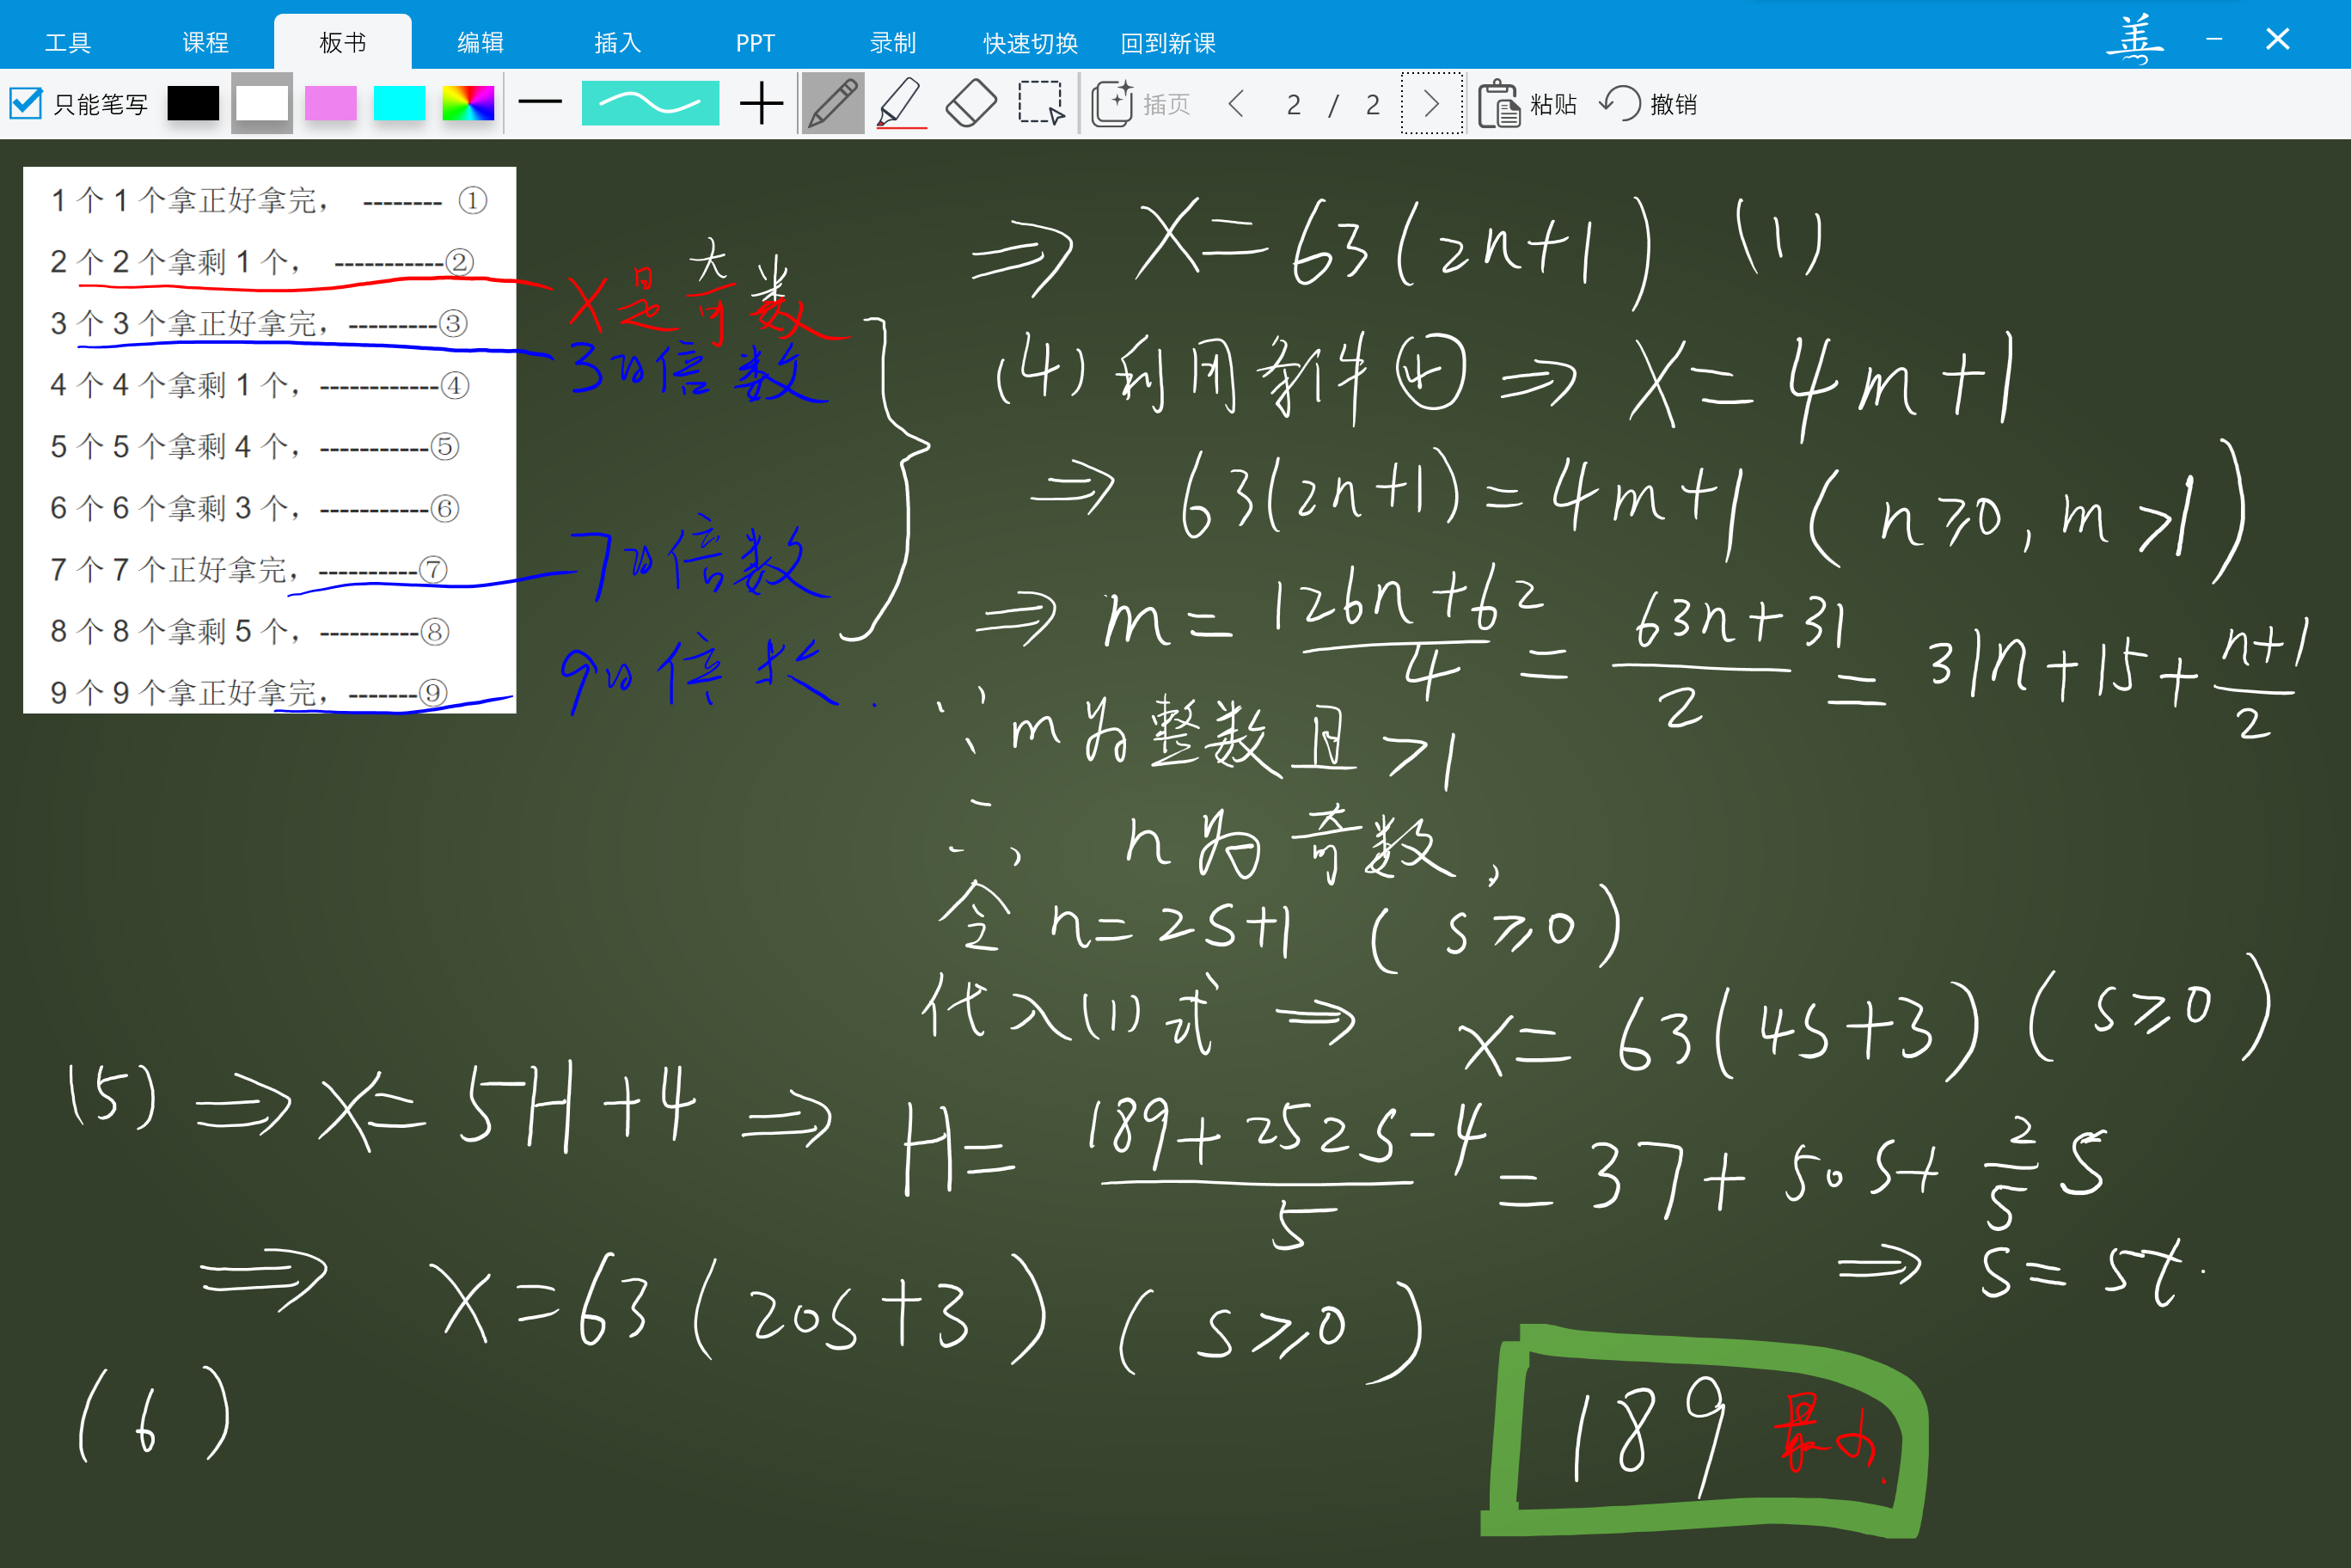 工具 课程 板书 编辑 插入 PPT 录制 快速切换 回到新课 善
只能笔写 插页 2 / 2 粘贴 撤销
1 个 1 个拿正好拿完， -------- ①
2 个 2 个拿剩 1 个， -----------②
3 个 3 个拿正好拿完，---------③
4 个 4 个拿剩 1 个，------------④
5 个 5 个拿剩 4 个，-----------⑤
6 个 6 个拿剩 3 个，-----------⑥
7 个 7 个正好拿完，----------⑦
8 个 8 个拿剩 5 个，----------⑧
9 个 9 个拿正好拿完，-------⑨
X是奇数
3的倍数
7的倍数
9的倍数.
⇒ X=63(2n+1) (1)
(4) 利用条件④ ⇒ X=4m+1
⇒ 63(2n+1)=4m+1 (n≥0, m>1)
⇒ m= (126n+62)/4 = (63n+31)/2 = 31n+15+(n+1)/2
∵ m为整数且>1
∴ n为奇数,
令 n=2s+1 (s≥0)
代入(1)式 ⇒ x=63(4s+3) (s≥0)
(5) ⇒ x=5H+4 ⇒ H= (189+252s-4)/5 = 37+50s+2/5 s
⇒ s=5t.
⇒ x=63(20s+3) (s≥0)
(6)
189 最小.